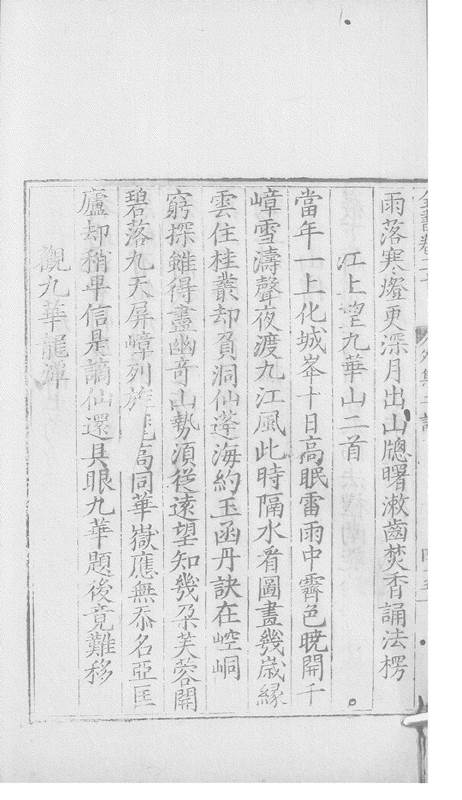 雨落寒燈更深月出山牕曙漱齒焚香誦法楞
江上望九華山二首
當年一上化城峯十日高眠雷雨中霽色曉開千
嶂雪濤聲夜渡九江風此時隔水看圖畫幾歲緣
雲住桂叢却負洞仙蓬海約玉函丹訣在崆峒
窮探雖得盡幽奇山勢須從遠望知幾朶芙蓉開
碧落九天屏嶂列旌麾高同華嶽應無忝名亞匡
廬却稍卑信是謫仙還具眼九華題後竟難移
觀九華龍潭